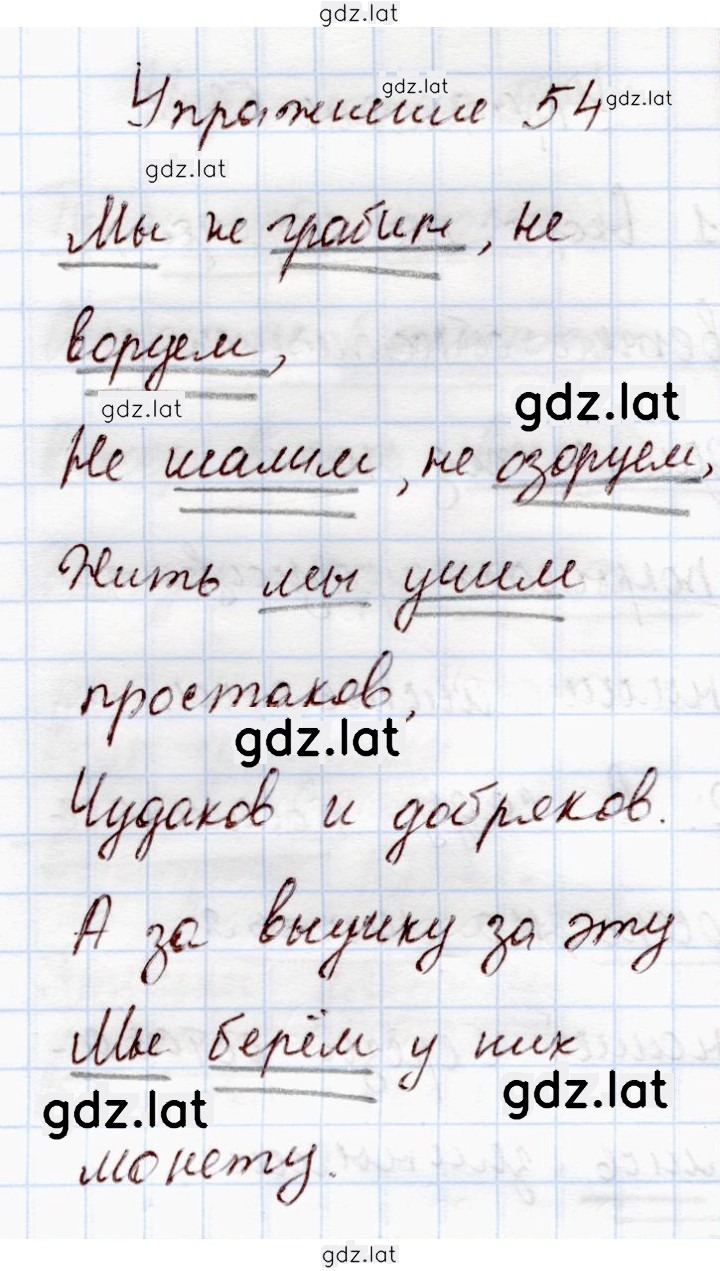 gdz.lat
gdz.lat
Упражнение 54 gdz.lat
gdz.lat
Мы не грабим, не
воруем,
gdz.lat
gdz.lat
Не шалим, не озоруем,
Жить мы учим
простаков,
gdz.lat
Чудаков и добряков.
А за выучку за эту
Мы берём у них
gdz.lat
gdz.lat
монету.
gdz.lat